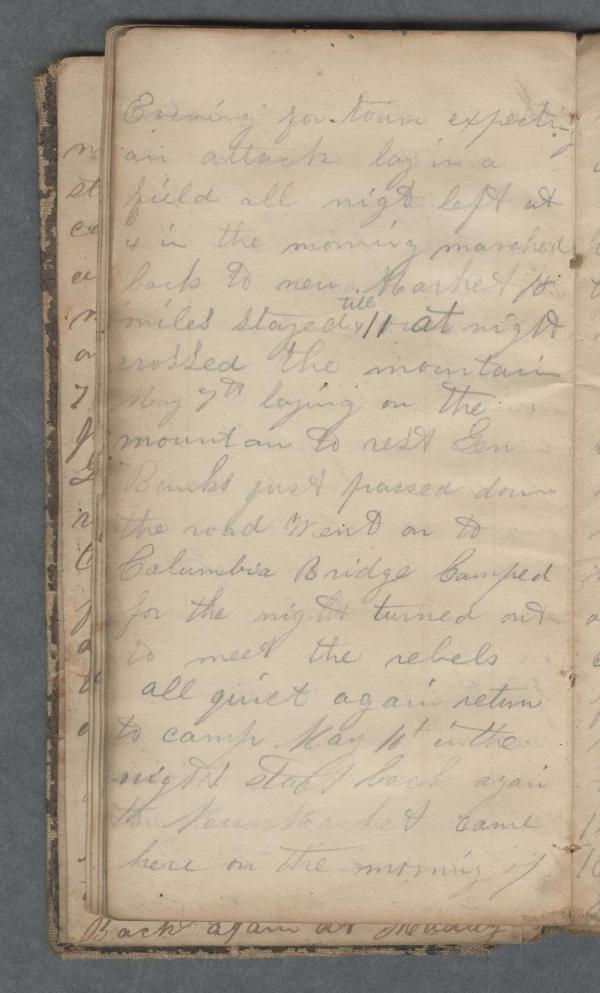 Evening for town expecting
an attack lay in a
field all night left at
4 in the morning marched
back to new Market 18
till
miles stayed 11 at night
crossed the mountain
May 7th laying on the
mountan to rest Gen
Banks just passed down
the road Went on to
Columbia Bridge Camped
for the night turned out
to meet the rebels
all quiet again return
to camp May in the
night start back again
to New Market came
here on the morning of
Back again at